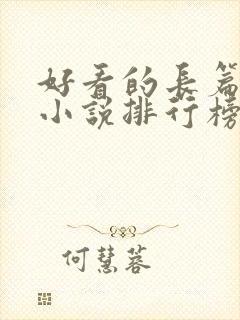 好看的長篇
小說排行榜
何慧蓉